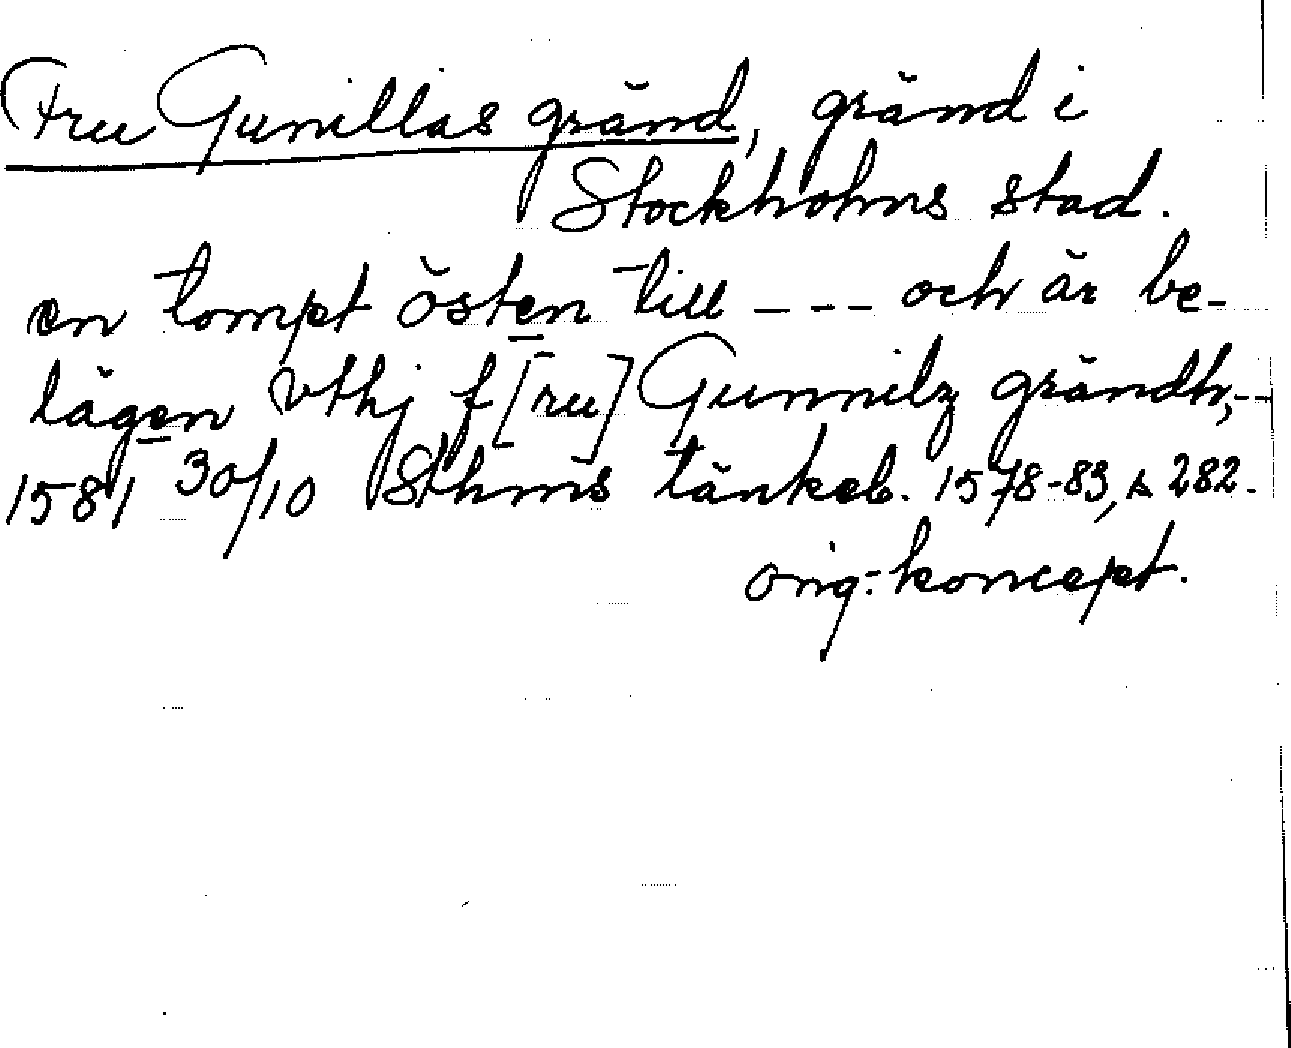 Fru Gunillas gränd, gränd i
Stockholms stad.
en tompt östen till --- och är be-
lägen vthj f[ru] Gunnilz grändh,--
1581 30/10 Sthms tänkeb. 1578-83, s 282.
orig.-koncept.